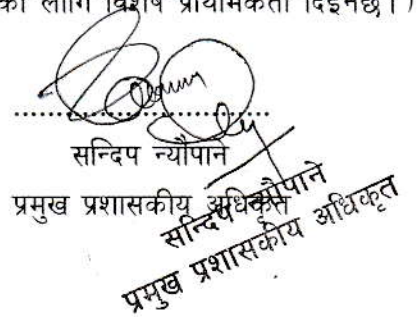 को लागि विशेष प्राथमिकता दिइनेछ।)
सन्दिप न्यौपाने
प्रमुख प्रशासकीय अधिकृत
सन्दिप न्यौपाने
प्रमुख प्रशासकीय अधिकृत